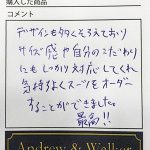 購入した商品
コメント
デザインも多くそろえており
サイズ感や自分のこだわり
にもしっかり対応してくれ
気持ちよくスーツをオーダー
することができました。
最高!!
Andrew & Walker